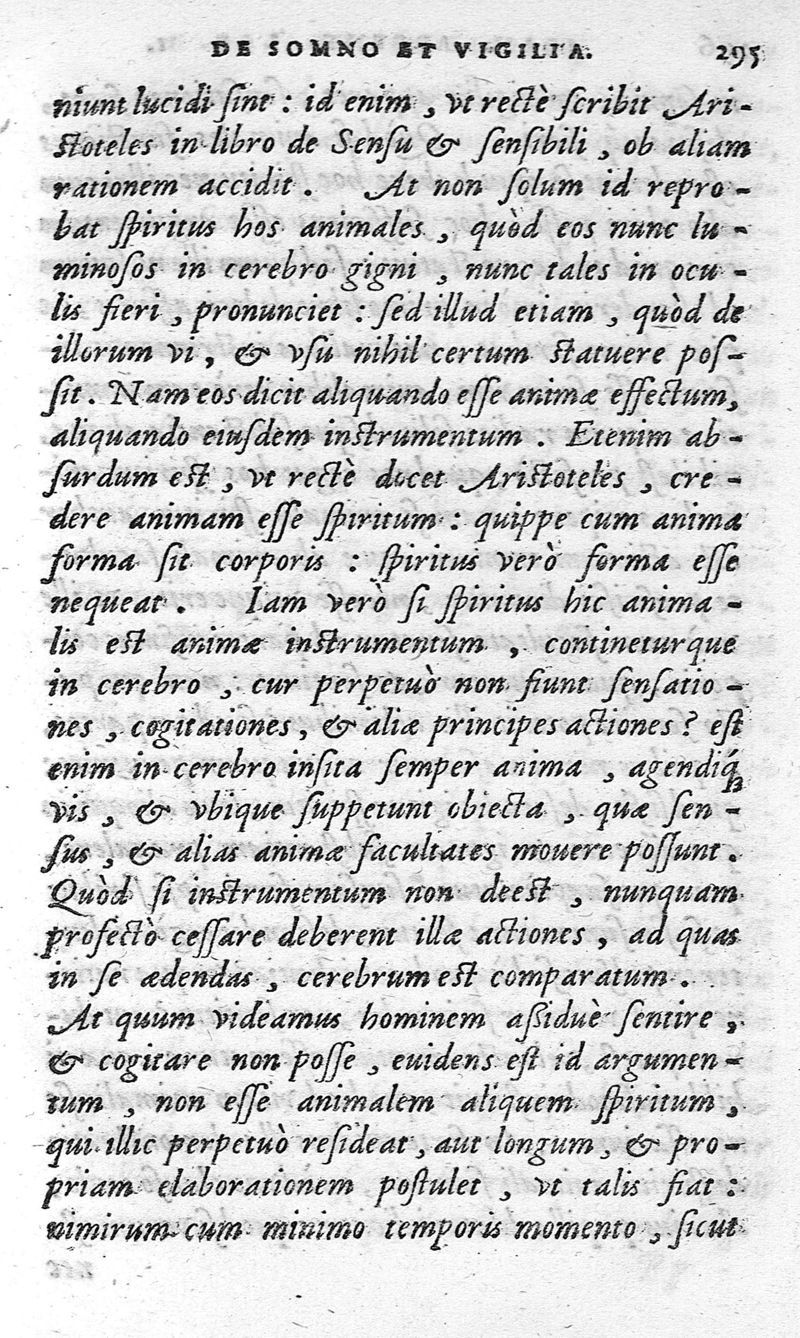 DE SOMNO ET VIGILIA. 295
niunt lucidi sint : id enim , vt rectè scribit Ari-
stoteles in libro de Sensu & sensibili , ob aliam
rationem accidit . At non solum id repro-
bat spiritus hos animales , quòd eos nunc lu-
minosos in cerebro gigni , nunc tales in ocu-
lis fieri , pronunciet : sed illud etiam , quòd de
illorum vi , & vsu nihil certum statuere pos-
sit . Nam eos dicit aliquando esse animæ effectum,
aliquando eiusdem instrumentum . Etenim ab-
surdum est , vt rectè docet Aristoteles , cre-
dere animam esse spiritum : quippe cum anima
forma sit corporis : spiritus verò forma esse
nequeat . Iam verò si spiritus hic anima-
lis est animæ instrumentum , contineturque
in cerebro , cur perpetuò non fiunt sensatio-
nes , cogitationes , & aliæ principes actiones ? est
enim in cerebro insita semper anima , agendiq́;
vis , & vbique suppetunt obiecta , quæ sen-
sus , & alias animæ facultates mouere possunt .
Quòd si instrumentum non deest , nunquam
profectò cessare deberent illæ actiones , ad quas
in se ædendas , cerebrum est comparatum .
At quum videamus hominem aßiduè sentire ,
& cogitare non posse , euidens est id argumen-
tum , non esse animalem aliquem spiritum ,
qui illic perpetuò resideat , aut longum , & pro-
priam elaborationem postulet , vt talis fiat :
nimirum cum minimo temporis momento , sicut